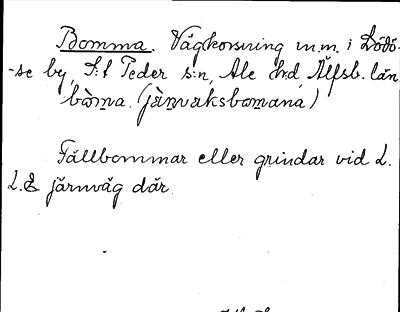 Bomma. Vägkorsning m.m. i Lödö-
-se by, S:t Peder s:n, Ale h:d Älfsb. län
bòma. (jà̤ɳvaksbomaná)
Fällbommar eller grindar vid L.
L. & järnväg där.